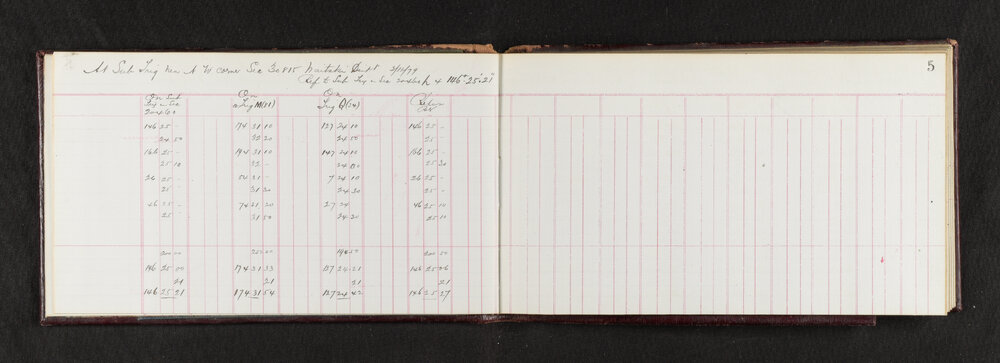 5
At Sub Trig near N W corner Sec 30815 2/11/79
Ref to Sub Trig in Sec 146° 25' 21"
On Sub On On
Trig in Sec Trig M(81) Trig Q(24)
146 25 - 174 31 10 127 24 10 146 25 -
24 50 32 20 24 50 25 -
166 25 - 194 31 10 147 24 10 166 25 -
25 10 32 - 24 00 25 30
26 25 - 54 31 - 7 24 10 26 25 -
25 - 31 20 24 30 25 -
46 25 - 74 31 20 27 24 46 25 10
25 - 31 50 24 20 25 10
200 00 200 50
146 25 00 174 31 33 127 24 21 146 25 06
21 21 21 21
146 25 21 174 31 54 127 24 42 146 25 27